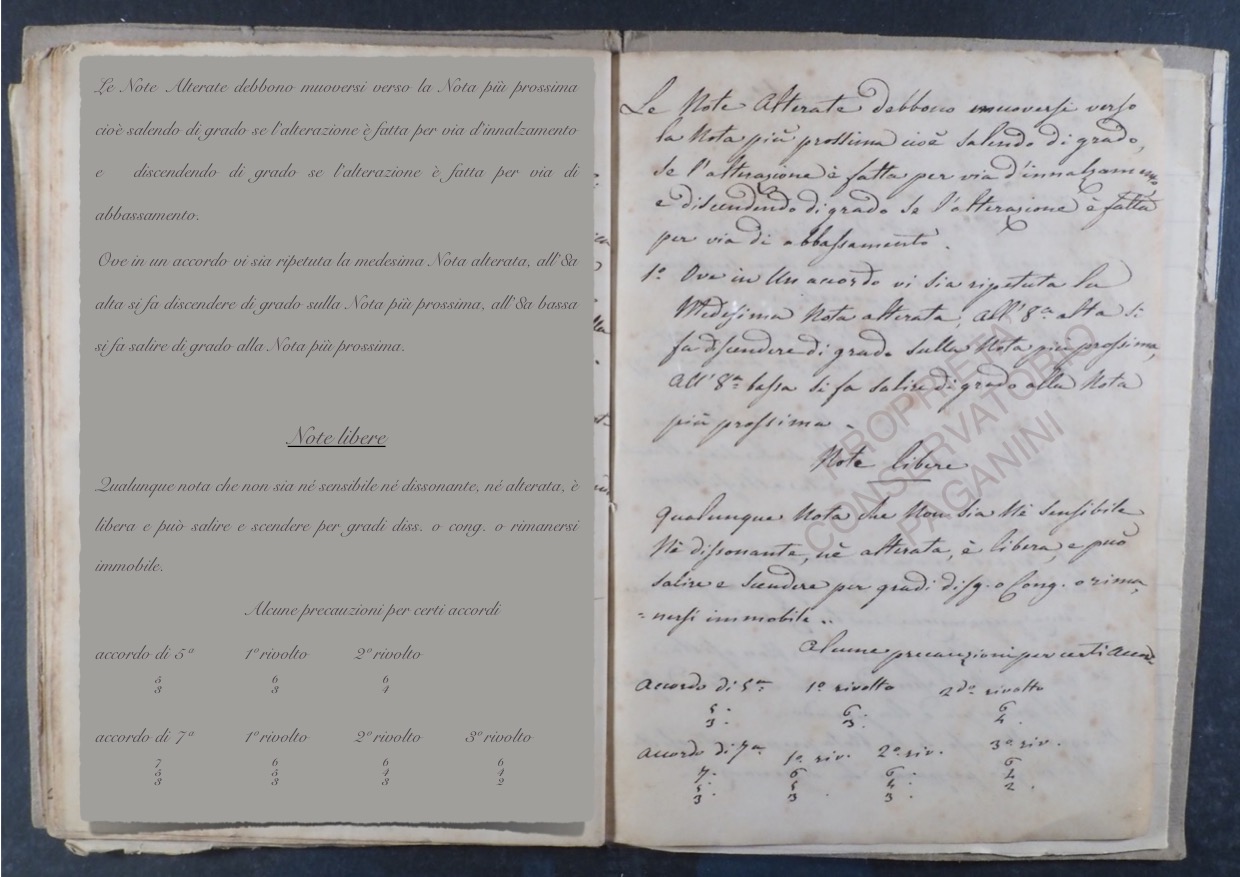 Le Note Alterate debbono muoversi verso la Nota più prossima
cioè salendo di grado se l'alterazione è fatta per via d'innalzamento
e discendendo di grado se l'alterazione è fatta per via di
abbassamento.
Ove in un accordo vi sia ripetuta la medesima Nota alterata, all'8a
alta si fa discendere di grado sulla Nota più prossima, all'8a bassa
si fa salire di grado alla Nota più prossima.
Note libere
Qualunque nota che non sia né sensibile né dissonante, né alterata, è
libera e può salire e scendere per gradi diss. o cong. o rimanersi
immobile.
Alcune precauzioni per certi accordi
accordo di 5ª 1º rivolto 2º rivolto
5 6 6
3 3 4
accordo di 7ª 1º rivolto 2º rivolto 3º rivolto
7 6 6 6
5 5 4 4
3 3 3 2
Le Note Alterate debbono muoversi verso
la Nota più prossima cioè salendo di grado,
se l'alterazione è fatta per via d'innalzamento
e discendendo di grado se l'alterazione è fatta
per via di abbassamento.
1º Ove in Un accordo vi sia ripetuta la
Medesima Nota alterata, all'8ª alta si
fa discendere di grado sulla Nota più prossima,
all'8ª bassa si fa salire di grado alla Nota
più prossima.
Note libere
Qualunque Nota che Non sia Nè sensibile
Nè dissonante, nè alterata, è libera, e può
salire e scendere per gradi disg. o Cong. o rima
=nersi immobile..
Alcune precauzioni per certi accordi
Accordo di 5ª 1º rivolto 2do rivolto
5 6 6
3 3 4
accordo di 7ª 1º riv. 2º riv. 3º riv.
7 6 6 6
5 5 4 4
3 3 3 2
PROPRIETA'
CONSERVATORIO
PAGANINI